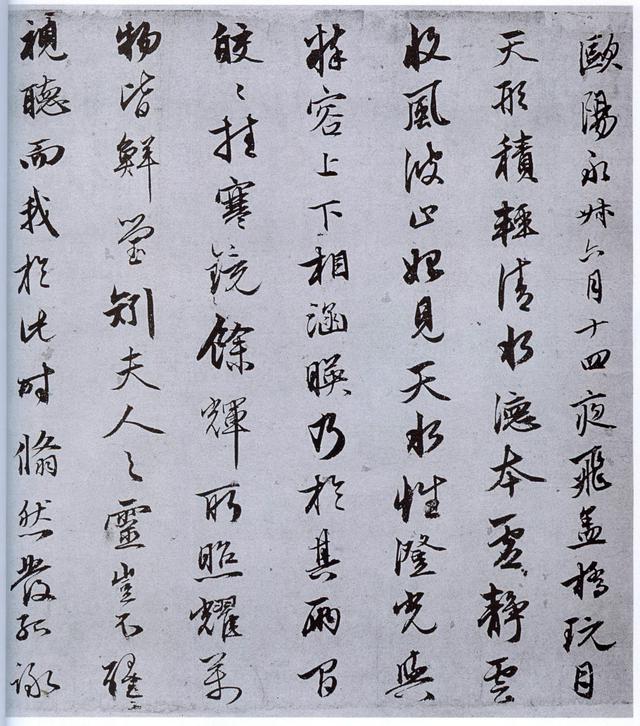 歐陽永叔六月十四夜飛盖橋玩月
天形積輕清水德本虛靜雲
收風波止始見天水性澄光與
粹容上下相涵暎乃於其兩間
皎〻挂寒鏡餘輝所照耀萬
物皆鮮瑩矧夫人之靈豈不醒
視聽而我於此時翛然發孤詠